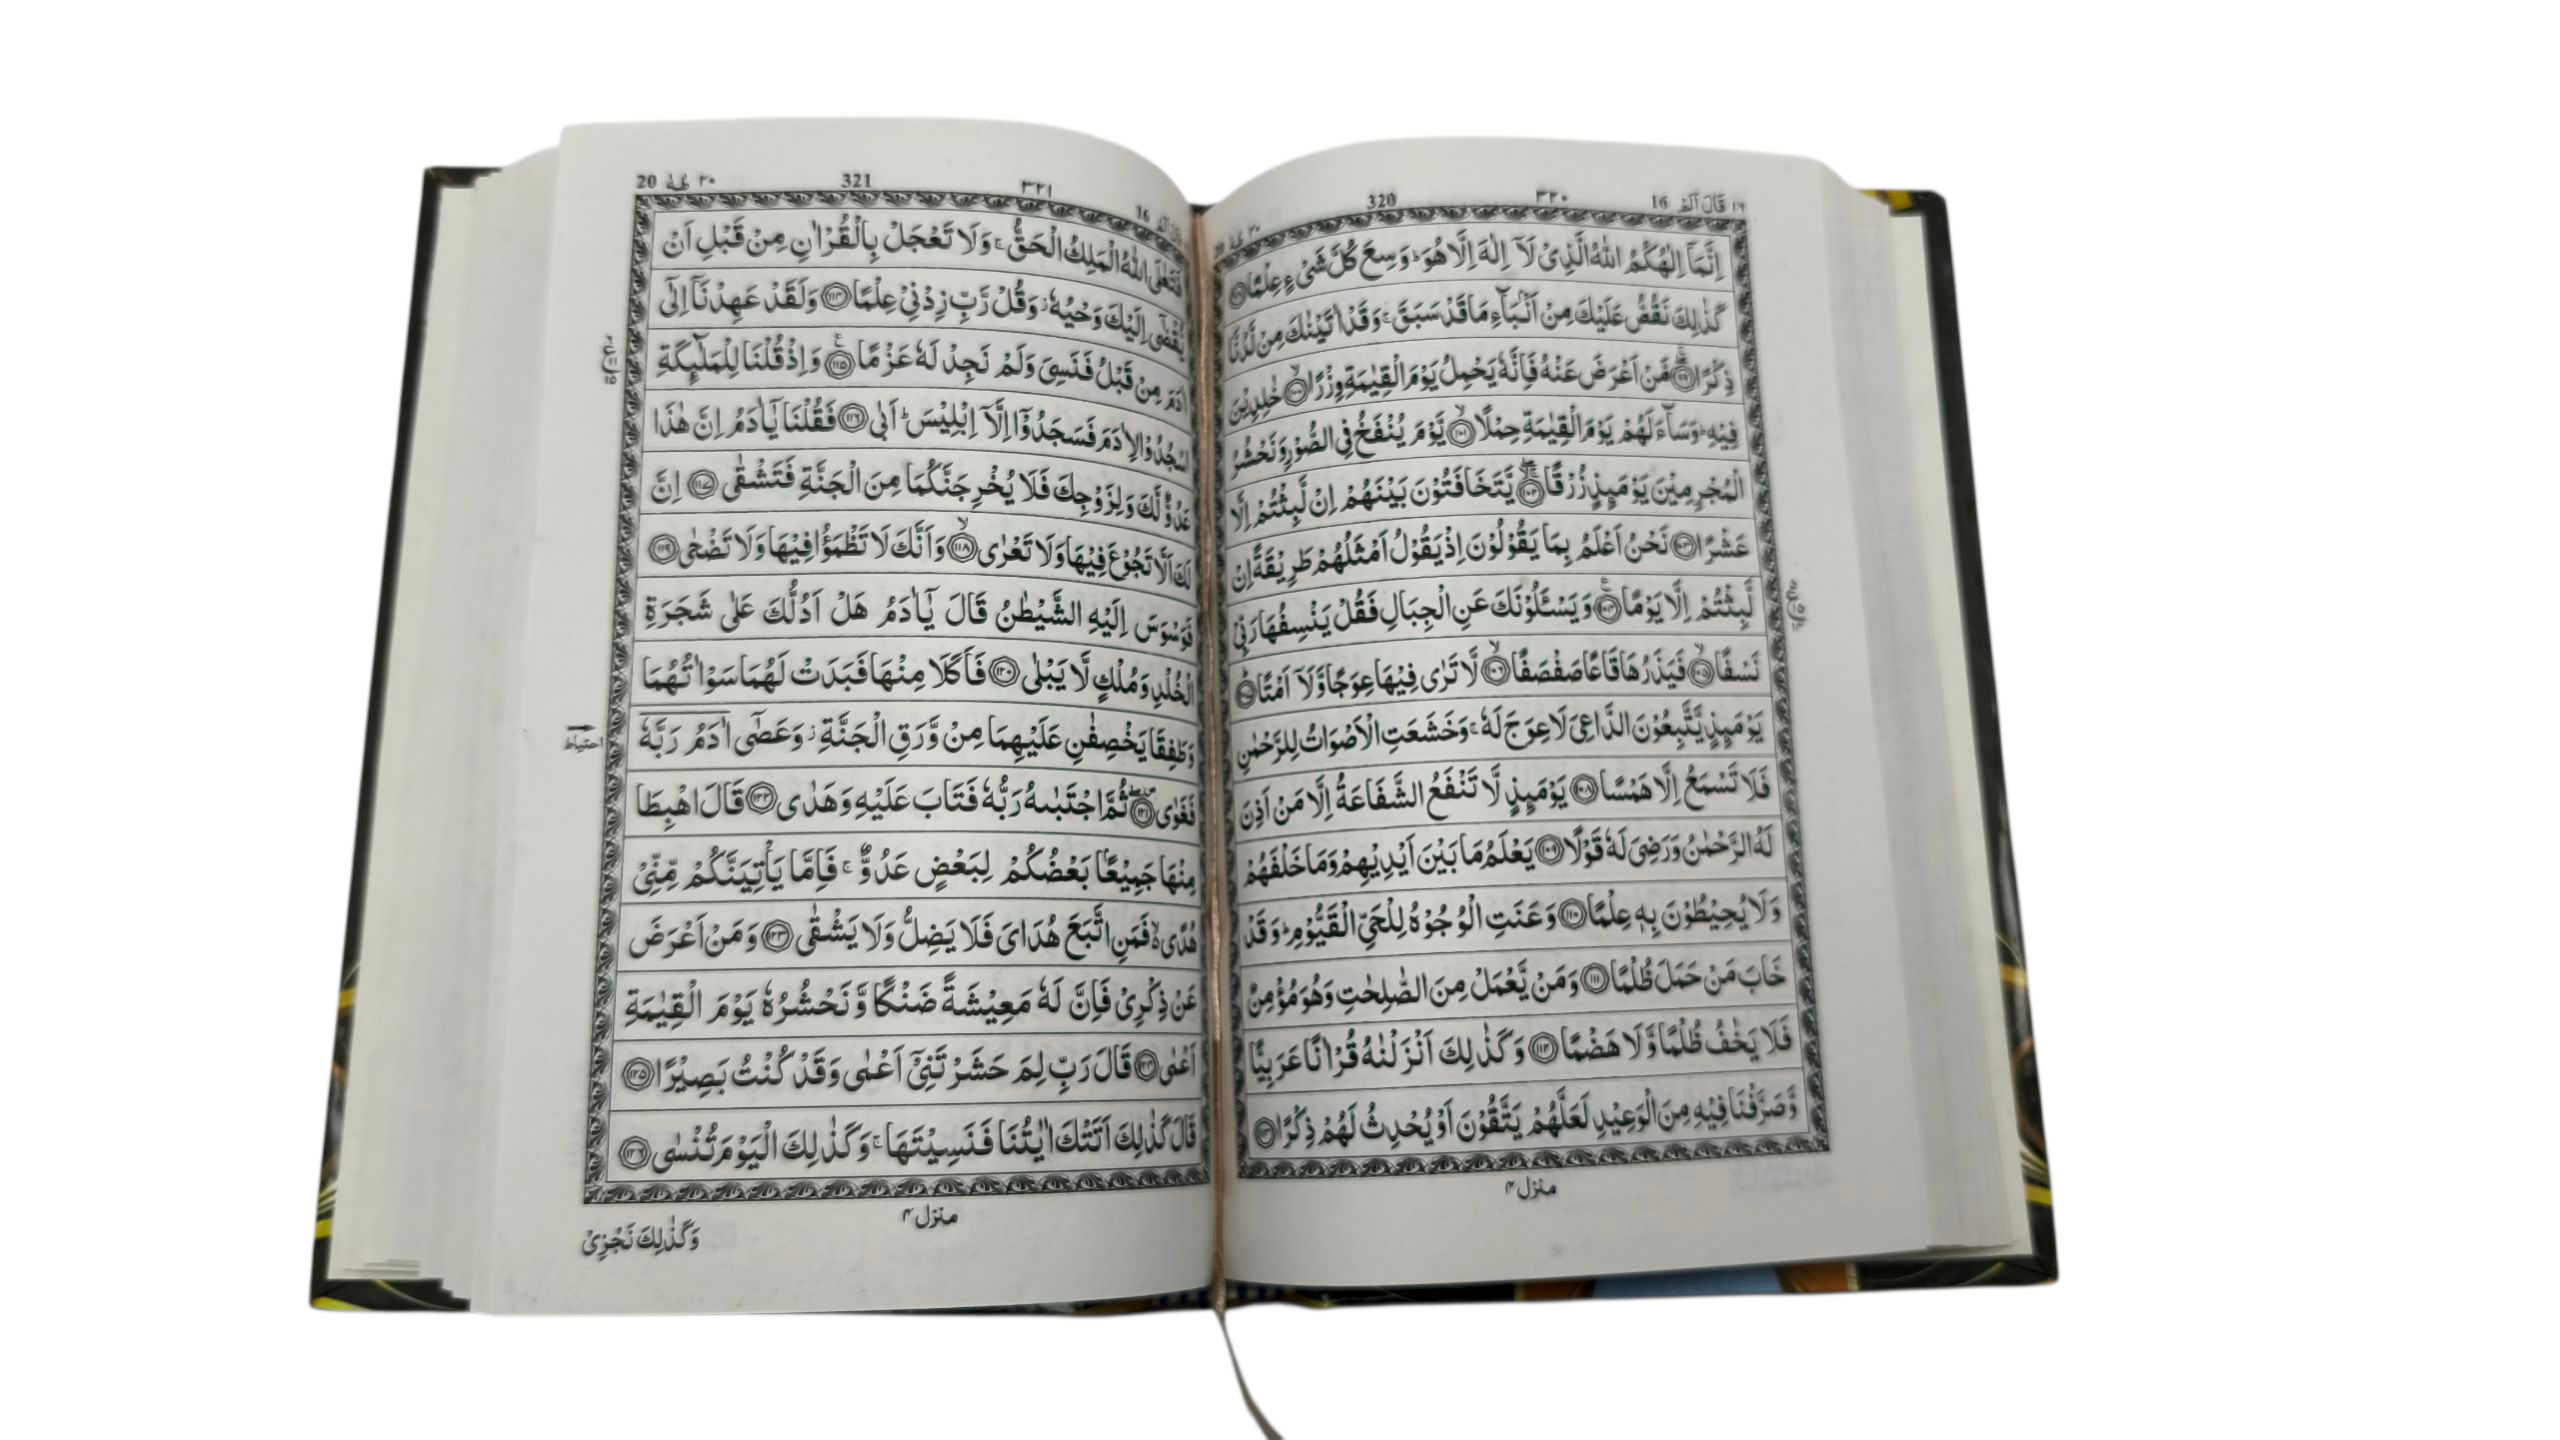 ١٦ قَالَ اَلَمْ 16 ٣٢٠ 320
اِنَّمَاۤ اِلٰهُكُمُ اللّٰهُ الَّذِیْ لَاۤ اِلٰهَ اِلَّا هُوَ ؕ وَسِعَ كُلَّ شَیْءٍ عِلْمًا ﴿٩٨﴾
كَذٰلِكَ نَقُصُّ عَلَیْكَ مِنْ اَنْۢبَآءِ مَا قَدْ سَبَقَ ۚ وَقَدْ اٰتَیْنٰكَ مِنْ لَّدُنَّا
ذِكْرًا ﴿٩٩﴾ مَنْ اَعْرَضَ عَنْهُ فَاِنَّهٗ یَحْمِلُ یَوْمَ الْقِیٰمَةِ وِزْرًا ﴿١٠٠﴾ خٰلِدِیْنَ
فِیْهِ ؕ وَسَآءَ لَهُمْ یَوْمَ الْقِیٰمَةِ حِمْلًا ﴿١٠١﴾ یَّوْمَ یُنْفَخُ فِی الصُّوْرِ وَنَحْشُرُ
الْمُجْرِمِیْنَ یَوْمَىِٕذٍ زُرْقًا ﴿١٠٢﴾ یَّتَخَافَتُوْنَ بَیْنَهُمْ اِنْ لَّبِثْتُمْ اِلَّا
عَشْرًا ﴿١٠٣﴾ نَحْنُ اَعْلَمُ بِمَا یَقُوْلُوْنَ اِذْ یَقُوْلُ اَمْثَلُهُمْ طَرِیْقَةً اِنْ
لَّبِثْتُمْ اِلَّا یَوْمًا ﴿١٠٤﴾ وَیَسْـَٔلُوْنَكَ عَنِ الْجِبَالِ فَقُلْ یَنْسِفُهَا رَبِّیْ
نَسْفًا ﴿١٠٥﴾ فَیَذَرُهَا قَاعًا صَفْصَفًا ﴿١٠٦﴾ لَّا تَرٰی فِیْهَا عِوَجًا وَّلَاۤ اَمْتًا ﴿١٠٧﴾
یَوْمَىِٕذٍ یَّتَّبِعُوْنَ الدَّاعِیَ لَا عِوَجَ لَهٗ ۚ وَخَشَعَتِ الْاَصْوَاتُ لِلرَّحْمٰنِ
فَلَا تَسْمَعُ اِلَّا هَمْسًا ﴿١٠٨﴾ یَوْمَىِٕذٍ لَّا تَنْفَعُ الشَّفَاعَةُ اِلَّا مَنْ اَذِنَ
لَهُ الرَّحْمٰنُ وَرَضِیَ لَهٗ قَوْلًا ﴿١٠٩﴾ یَعْلَمُ مَا بَیْنَ اَیْدِیْهِمْ وَمَا خَلْفَهُمْ
وَلَا یُحِیْطُوْنَ بِهٖ عِلْمًا ﴿١١٠﴾ وَعَنَتِ الْوُجُوْهُ لِلْحَیِّ الْقَیُّوْمِ ؕ وَقَدْ
خَابَ مَنْ حَمَلَ ظُلْمًا ﴿١١١﴾ وَمَنْ یَّعْمَلْ مِنَ الصّٰلِحٰتِ وَهُوَ مُؤْمِنٌ
فَلَا یَخٰفُ ظُلْمًا وَّلَا هَضْمًا ﴿١١٢﴾ وَكَذٰلِكَ اَنْزَلْنٰهُ قُرْاٰنًا عَرَبِیًّا
وَّصَرَّفْنَا فِیْهِ مِنَ الْوَعِیْدِ لَعَلَّهُمْ یَتَّقُوْنَ اَوْ یُحْدِثُ لَهُمْ ذِكْرًا ﴿١١٣﴾
منزل ٤
16 ٣٢١ 321 ٢٠ طٰهٰ 20
فَتَعٰلَی اللّٰهُ الْمَلِكُ الْحَقُّ ۚ وَلَا تَعْجَلْ بِالْقُرْاٰنِ مِنْ قَبْلِ اَنْ
یُّقْضٰۤی اِلَیْكَ وَحْیُهٗ ؗ وَقُلْ رَّبِّ زِدْنِیْ عِلْمًا ﴿١١٤﴾ وَلَقَدْ عَهِدْنَاۤ اِلٰۤی
اٰدَمَ مِنْ قَبْلُ فَنَسِیَ وَلَمْ نَجِدْ لَهٗ عَزْمًا ﴿١١٥﴾ وَاِذْ قُلْنَا لِلْمَلٰٓىِٕكَةِ
اسْجُدُوْا لِاٰدَمَ فَسَجَدُوْۤا اِلَّاۤ اِبْلِیْسَ ؕ اَبٰی ﴿١١٦﴾ فَقُلْنَا یٰۤاٰدَمُ اِنَّ هٰذَا
عَدُوٌّ لَّكَ وَلِزَوْجِكَ فَلَا یُخْرِجَنَّكُمَا مِنَ الْجَنَّةِ فَتَشْقٰی ﴿١١٧﴾ اِنَّ
لَكَ اَلَّا تَجُوْعَ فِیْهَا وَلَا تَعْرٰی ﴿١١٨﴾ وَاَنَّكَ لَا تَظْمَؤُا فِیْهَا وَلَا تَضْحٰی ﴿١١٩﴾
فَوَسْوَسَ اِلَیْهِ الشَّیْطٰنُ قَالَ یٰۤاٰدَمُ هَلْ اَدُلُّكَ عَلٰی شَجَرَةِ
الْخُلْدِ وَمُلْكٍ لَّا یَبْلٰی ﴿١٢٠﴾ فَاَكَلَا مِنْهَا فَبَدَتْ لَهُمَا سَوْاٰتُهُمَا
وَطَفِقَا یَخْصِفٰنِ عَلَیْهِمَا مِنْ وَّرَقِ الْجَنَّةِ ؗ وَعَصٰۤی اٰدَمُ رَبَّهٗ
احتیاط
فَغَوٰی ﴿١٢١﴾ ثُمَّ اجْتَبٰىهُ رَبُّهٗ فَتَابَ عَلَیْهِ وَهَدٰی ﴿١٢٢﴾ قَالَ اهْبِطَا
مِنْهَا جَمِیْعًۢا بَعْضُكُمْ لِبَعْضٍ عَدُوٌّ ۚ فَاِمَّا یَاْتِیَنَّكُمْ مِّنِّیْ
هُدًی ۙ۬ فَمَنِ اتَّبَعَ هُدَایَ فَلَا یَضِلُّ وَلَا یَشْقٰی ﴿١٢٣﴾ وَمَنْ اَعْرَضَ
عَنْ ذِكْرِیْ فَاِنَّ لَهٗ مَعِیْشَةً ضَنْكًا وَّنَحْشُرُهٗ یَوْمَ الْقِیٰمَةِ
اَعْمٰی ﴿١٢٤﴾ قَالَ رَبِّ لِمَ حَشَرْتَنِیْۤ اَعْمٰی وَقَدْ كُنْتُ بَصِیْرًا ﴿١٢٥﴾
قَالَ كَذٰلِكَ اَتَتْكَ اٰیٰتُنَا فَنَسِیْتَهَا ۚ وَكَذٰلِكَ الْیَوْمَ تُنْسٰی ﴿١٢٦﴾
منزل ٤
وَكَذٰلِكَ نَجْزِیْ